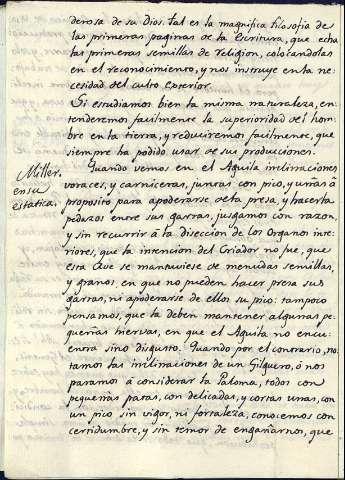 derosa de su dios. tal es la magnifica filosofia de
las primeras paginas de la Escritura, que echa
las primeras semillas de religion, colocandolas
en el reconocimiento, y nos instruye en la ne-
cesidad del culto exterior.
Si estudiamos bien la misma naturaleza, en-
tenderemos facilmente la superioridad del hom-
bre en la tierra, y reduciremos facilmente, que
siempre ha podido usar de sus producciones.
Miller.
en su
estatica.
Quando vemos en el Aquila inclinaciones
voraces, y carniceras, juntas con pico, y uñas á
proposito para apoderarse de la presa, y hacerla
pedazos entre sus garras, jusgamos con razon,
y sin recurrir á la diseccion de los Organos inte-
riores, que la intencion del Criador no fue, que
esta Ave se mantuviese de menudas semillas,
y granos en que no pueden hacer presa sus
garras, ni apoderarse de ellos su pico: tampoco
pensamos, que la deben mantener algunas pe-
queñas hiervas, en que el Aquila no encu-
entra sino disgusto. Quando por el contrario, no-
tamos las inclinaciones de un Gilguero, ó nos
paramos á considerar la Paloma, todos con
pequeñas patas, con delicadas, y cortas unas, con
un pico sin vigor, ni fortaleza, conocemos con
certidumbre, y sin temor de engañarnos, que